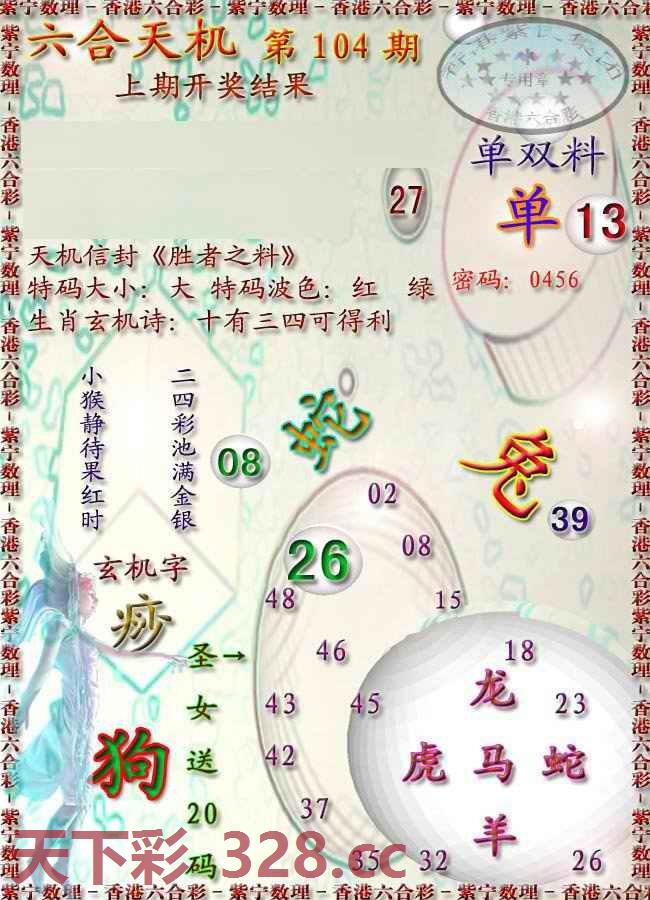 紫宁数理－香港六合彩－紫宁数理－香港六合彩－紫宁数理－香港六合彩－紫宁数理
六合天机 第 104 期
上期开奖结果
专用章
香港六合彩
单双料
27
单 13
天机信封《胜者之料》
特码大小：大 特码波色：红 绿
密码：0456
生肖玄机诗：十有三四可得利
小猴静待果红时
二四彩池满金银
蛇
08
兔
39
02
26
08
48
15
玄机字
痧
圣女送20码
→
46
18
43
45
龙
23
狗
42
虎 马 蛇
37
羊
35
32
26
天下彩.328.cc
紫宁数理－香港六合彩－紫宁数理－香港六合彩－紫宁数理－香港六合彩－紫宁数理